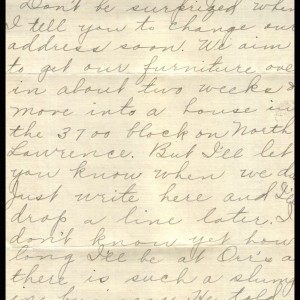 Don't be surprized when
I tell you to change our
address soon. We aim
to get our furniture over
in about two weeks &
move into a house in
the 3700 block on North
Lawrence. But I'll let
you know when we do
Just write here and I'll
drop a line later. I
don't know yet how
long I'll be at Orr's as
there is such a slump